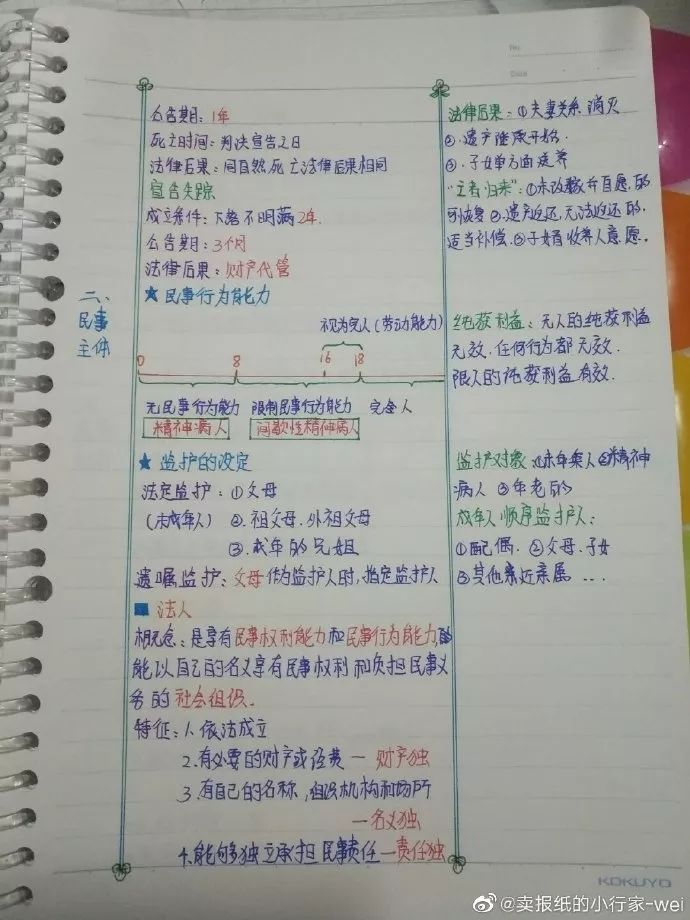 No.
Date
公告期：1年
死亡时间：判决宣告之日
法律后果：同自然死亡法律后果相同
宣告失踪
成立条件：下落不明满2年.
公告期：3个月
法律后果：财产代管
二、
民事
主体
★ 民事行为能力
视为完人（劳动能力）
0 8 16 18
无民事行为能力 限制民事行为能力 完全人
精神病人 间歇性精神病人
★ 监护的设定
法定监护：①父母
（未成年人） ②.祖父母.外祖父母
③.成年的兄姐
遗嘱监护：父母作为监护人时,指定监护人
法人
概念：是享有民事权利能力和民事行为能力,的
能以自己的名义享有民事权利和负担民事义
务的社会组织.
特征：1.依法成立
2.有必要的财产或经费 — 财产独
3.有自己的名称,组织机构和场所
—名义独
4.能够独立承担民事责任—责任独
法律后果：①夫妻关系消灭
②.遗产继承开始.
③.子女单方面送养
"亡者归来"：①未改嫁并自愿的
可恢复②.遗产返还,无法返还的,
适当补偿.③子女看收养人意愿.
纯获利益：无人的纯获利益
无效.任何行为都无效.
限人的纯获利益有效.
监护对象：①未年人②精神
病人 ③年老的
成年人顺序监护人：
①配偶.②父母.子女
③其他亲近亲属 ...
KOKUYO
@卖报纸的小行家-wei